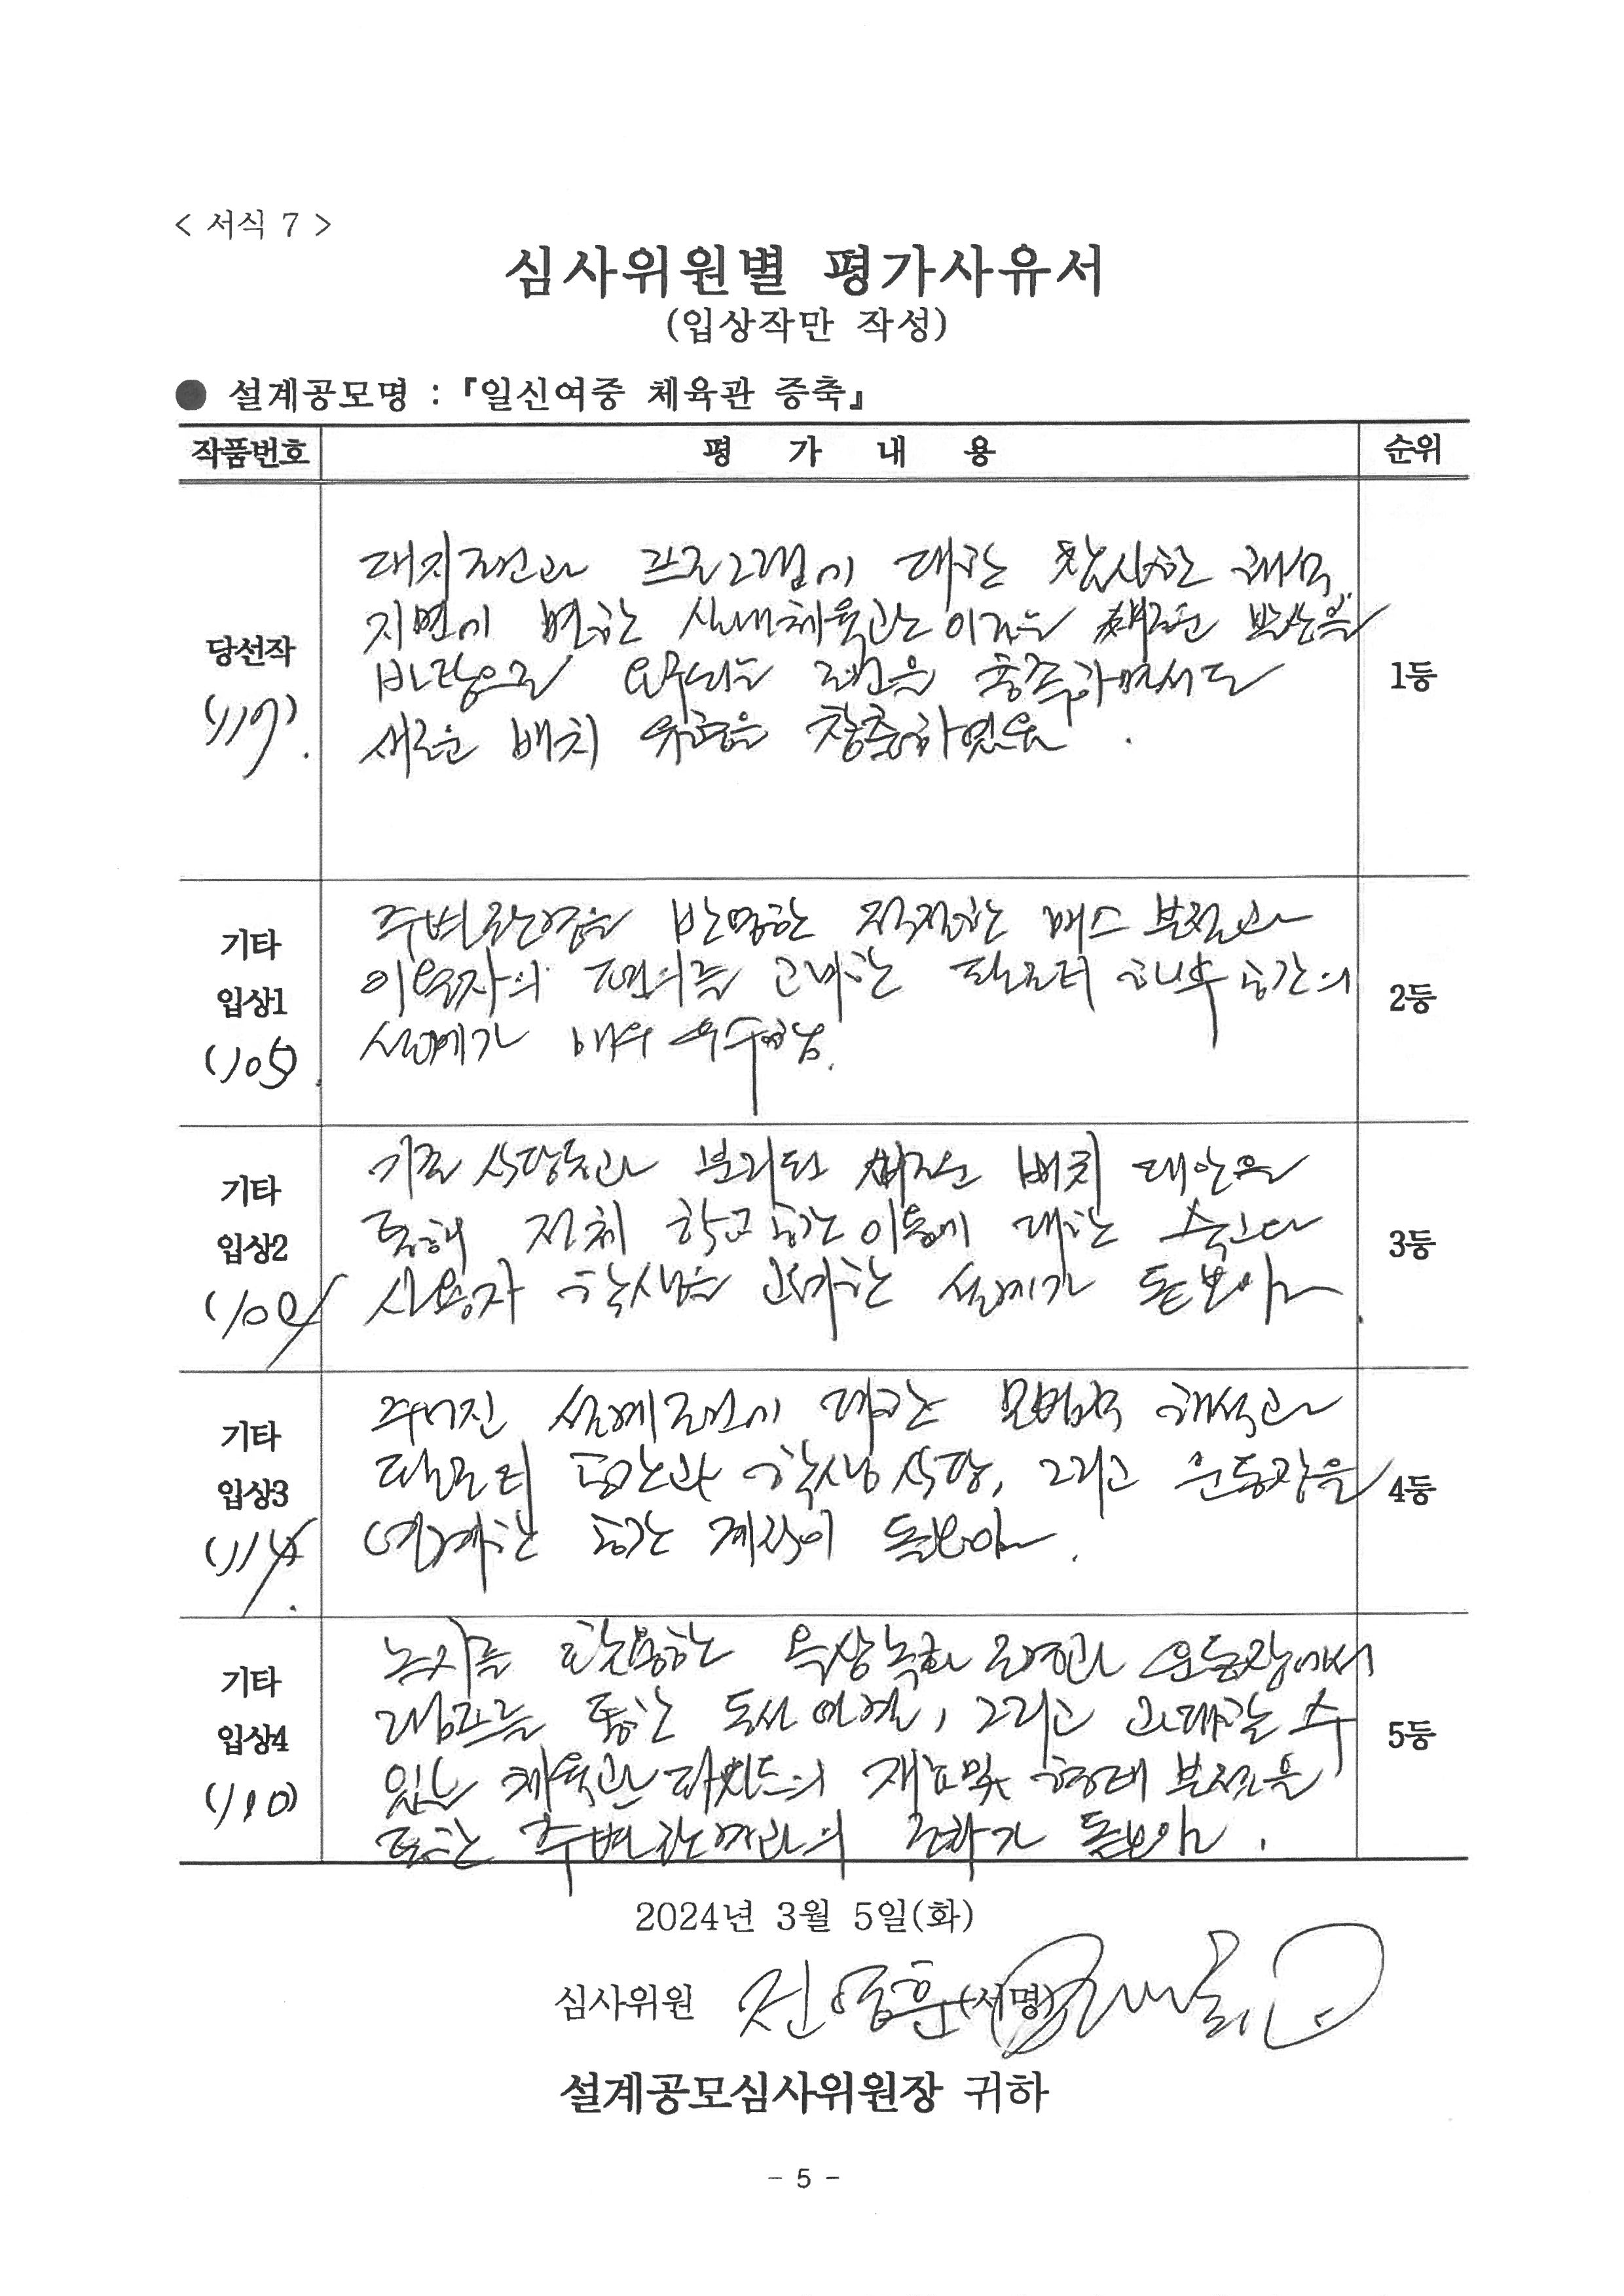 < 서식 7 >
심사위원별 평가사유서
(입상작만 작성)
● 설계공모명 : 『일신여중 체육관 증축』
작품번호 평 가 내 용 순위
당선작
(119).
대지조건과 프로그램에 대한 참신한 해석,
지면에 면한 실내체육관이라는 새로운 발상을
바탕으로 요구되는 조건을 충족하면서도
새로운 배치 유형을 창출하였음.
1등
기타
입상1
(105).
주변환경을 반영한 적절한 매스 분절과
이용자의 편의를 고려한 필로티 하부 공간의
설계가 매우 우수함.
2등
기타
입상2
(104)
기존 식당동과 분리된 새로운 배치 대안을
통해 전체 학교 공간 이용에 대한 숙고와
사용자 학생을 고려한 설계가 돋보임.
3등
기타
입상3
(114).
주어진 설계조건에 대한 모범적 해석과
필로티 공간과 학생식당, 그리고 운동장을
연계한 공간 계획이 돋보임.
4등
기타
입상4
(110)
녹지를 활용한 옥상녹화 운동장에서
램프를 통한 동선 연결, 그리고 확대할 수
있는 체육관 파사드의 재료 및 형태 분절을
통한 주변환경과의 조화가 돋보임.
5등
2024년 3월 5일(화)
심사위원 전영훈 (서명)
설계공모심사위원장 귀하
- 5 -